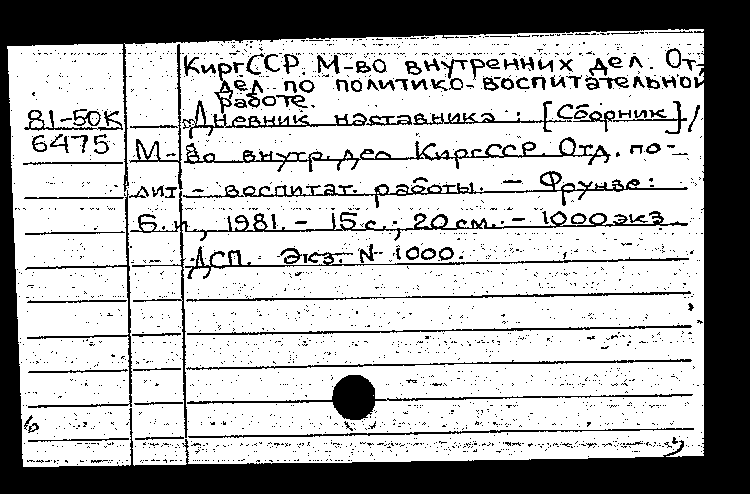 КиргССР. М-во внутренних дел. От-
дел по политико-воспитательной
работе.
81-50К
6475
Дневник наставника : [Сборник] /
М-во внутр. дел КиргССР. Отд. по-
лит-воспитат. работы. — Фрунзе:
Б. и., 1981. - 15 с.; 20 см. - 1000 экз.
ДСП. Экз. № 1000.